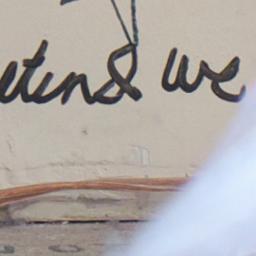 etend we